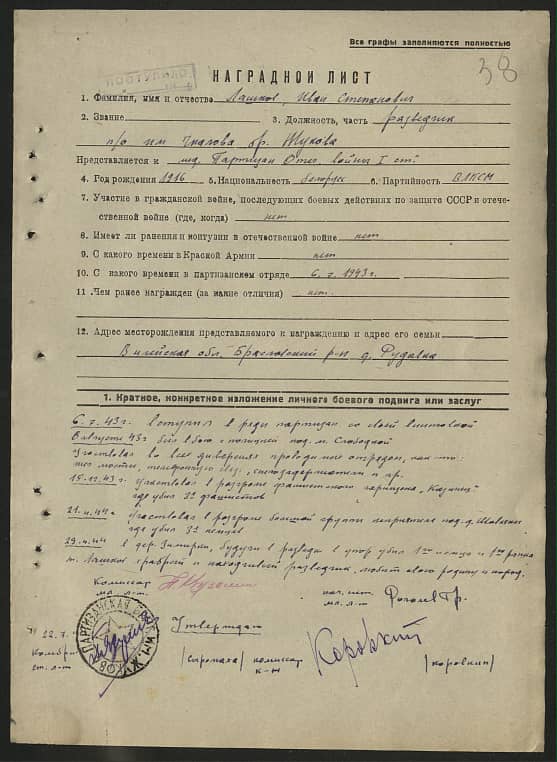 Все графы заполняются полностью
38
ПОСТУПИЛО
НАГРАДНОЙ ЛИСТ
1. Фамилия, имя и отчество Лашков, Иван Степанович
2. Звание 3. Должность, часть разведчик
п/о им Чкалова бр. Жукова
Представляется к мед. Партизан Отеч. войны I ст.
4. Год рождения 1916 5. Национальность белорус 6. Партийность ВЛКСМ
7. Участие в гражданской войне, последующих боевых действиях по защите СССР и отече-
ственной войне (где, когда) нет
8. Имеет ли ранения и контузии в отечественной войне нет
9. С какого времени в Красной Армии нет
10. С какого времени в партизанском отряде 6. 7. 1943 г.
11. Чем ранее награжден (за какие отличия) нет.
12. Адрес месторождения представляемого к награждению и адрес его семьи
Вилейская обл. Браславский р-н д. Рудавка
1. Краткое, конкретное изложение личного боевого подвига или заслуг
6. 7. 43 г. вступил в ряды партизан со своей винтовкой
В августе 43 г. был в бою с полицией под м. Слободкой
Участвовал во всех диверсиях проводимых отрядом, как-то:
мосты, телефонную связь, и пр.
15.12.43 г. Участвовал в разгроме фашистского гарнизона "Казинец"
где убил 2х фашистов
21.4.44 г. Участвовал в разгроме большой группы неприятеля под. д.
где убил 3х немцев
29.4.44 в дер. Зимирки, будучи в разведке в упор убил 1го немца и 1го
т. Лашков храбрый и находчивый разведчик, любит свою родину и народ.
Комиссар нач. шт.
мл. л-т мл. л-т Гр.
Утверждаю
ПАРТИЗАНСКАЯ ИМ. ЖУКОВА
22.7.
Комбриг (сиромаха) комиссар Коровкин (коровкин)
ст. л-т к-н